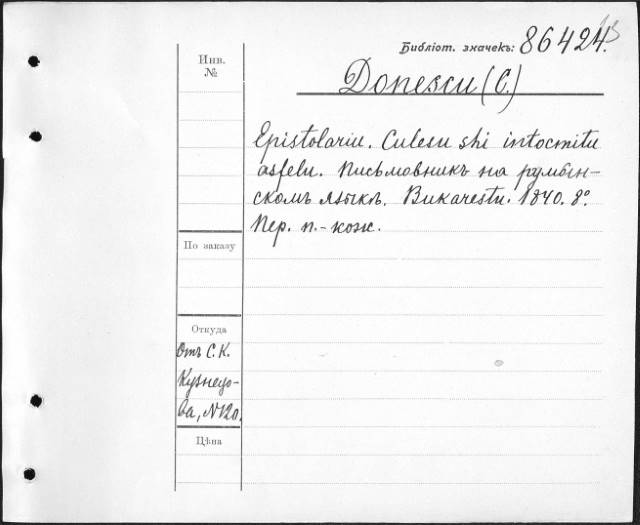 Библiот. значекъ: 86424.
Инв.
№
Donescu (C.)
Epistolariu. Culesu shi intocmitu
asfelu. Письмовникъ на румын-
скомъ языкѣ. Bukarestu. 1840. 8º.
Пер. п.-кож.
По заказу
Откуда
Отъ С. К.
Кузнецо-
ва, №120.
Цѣна